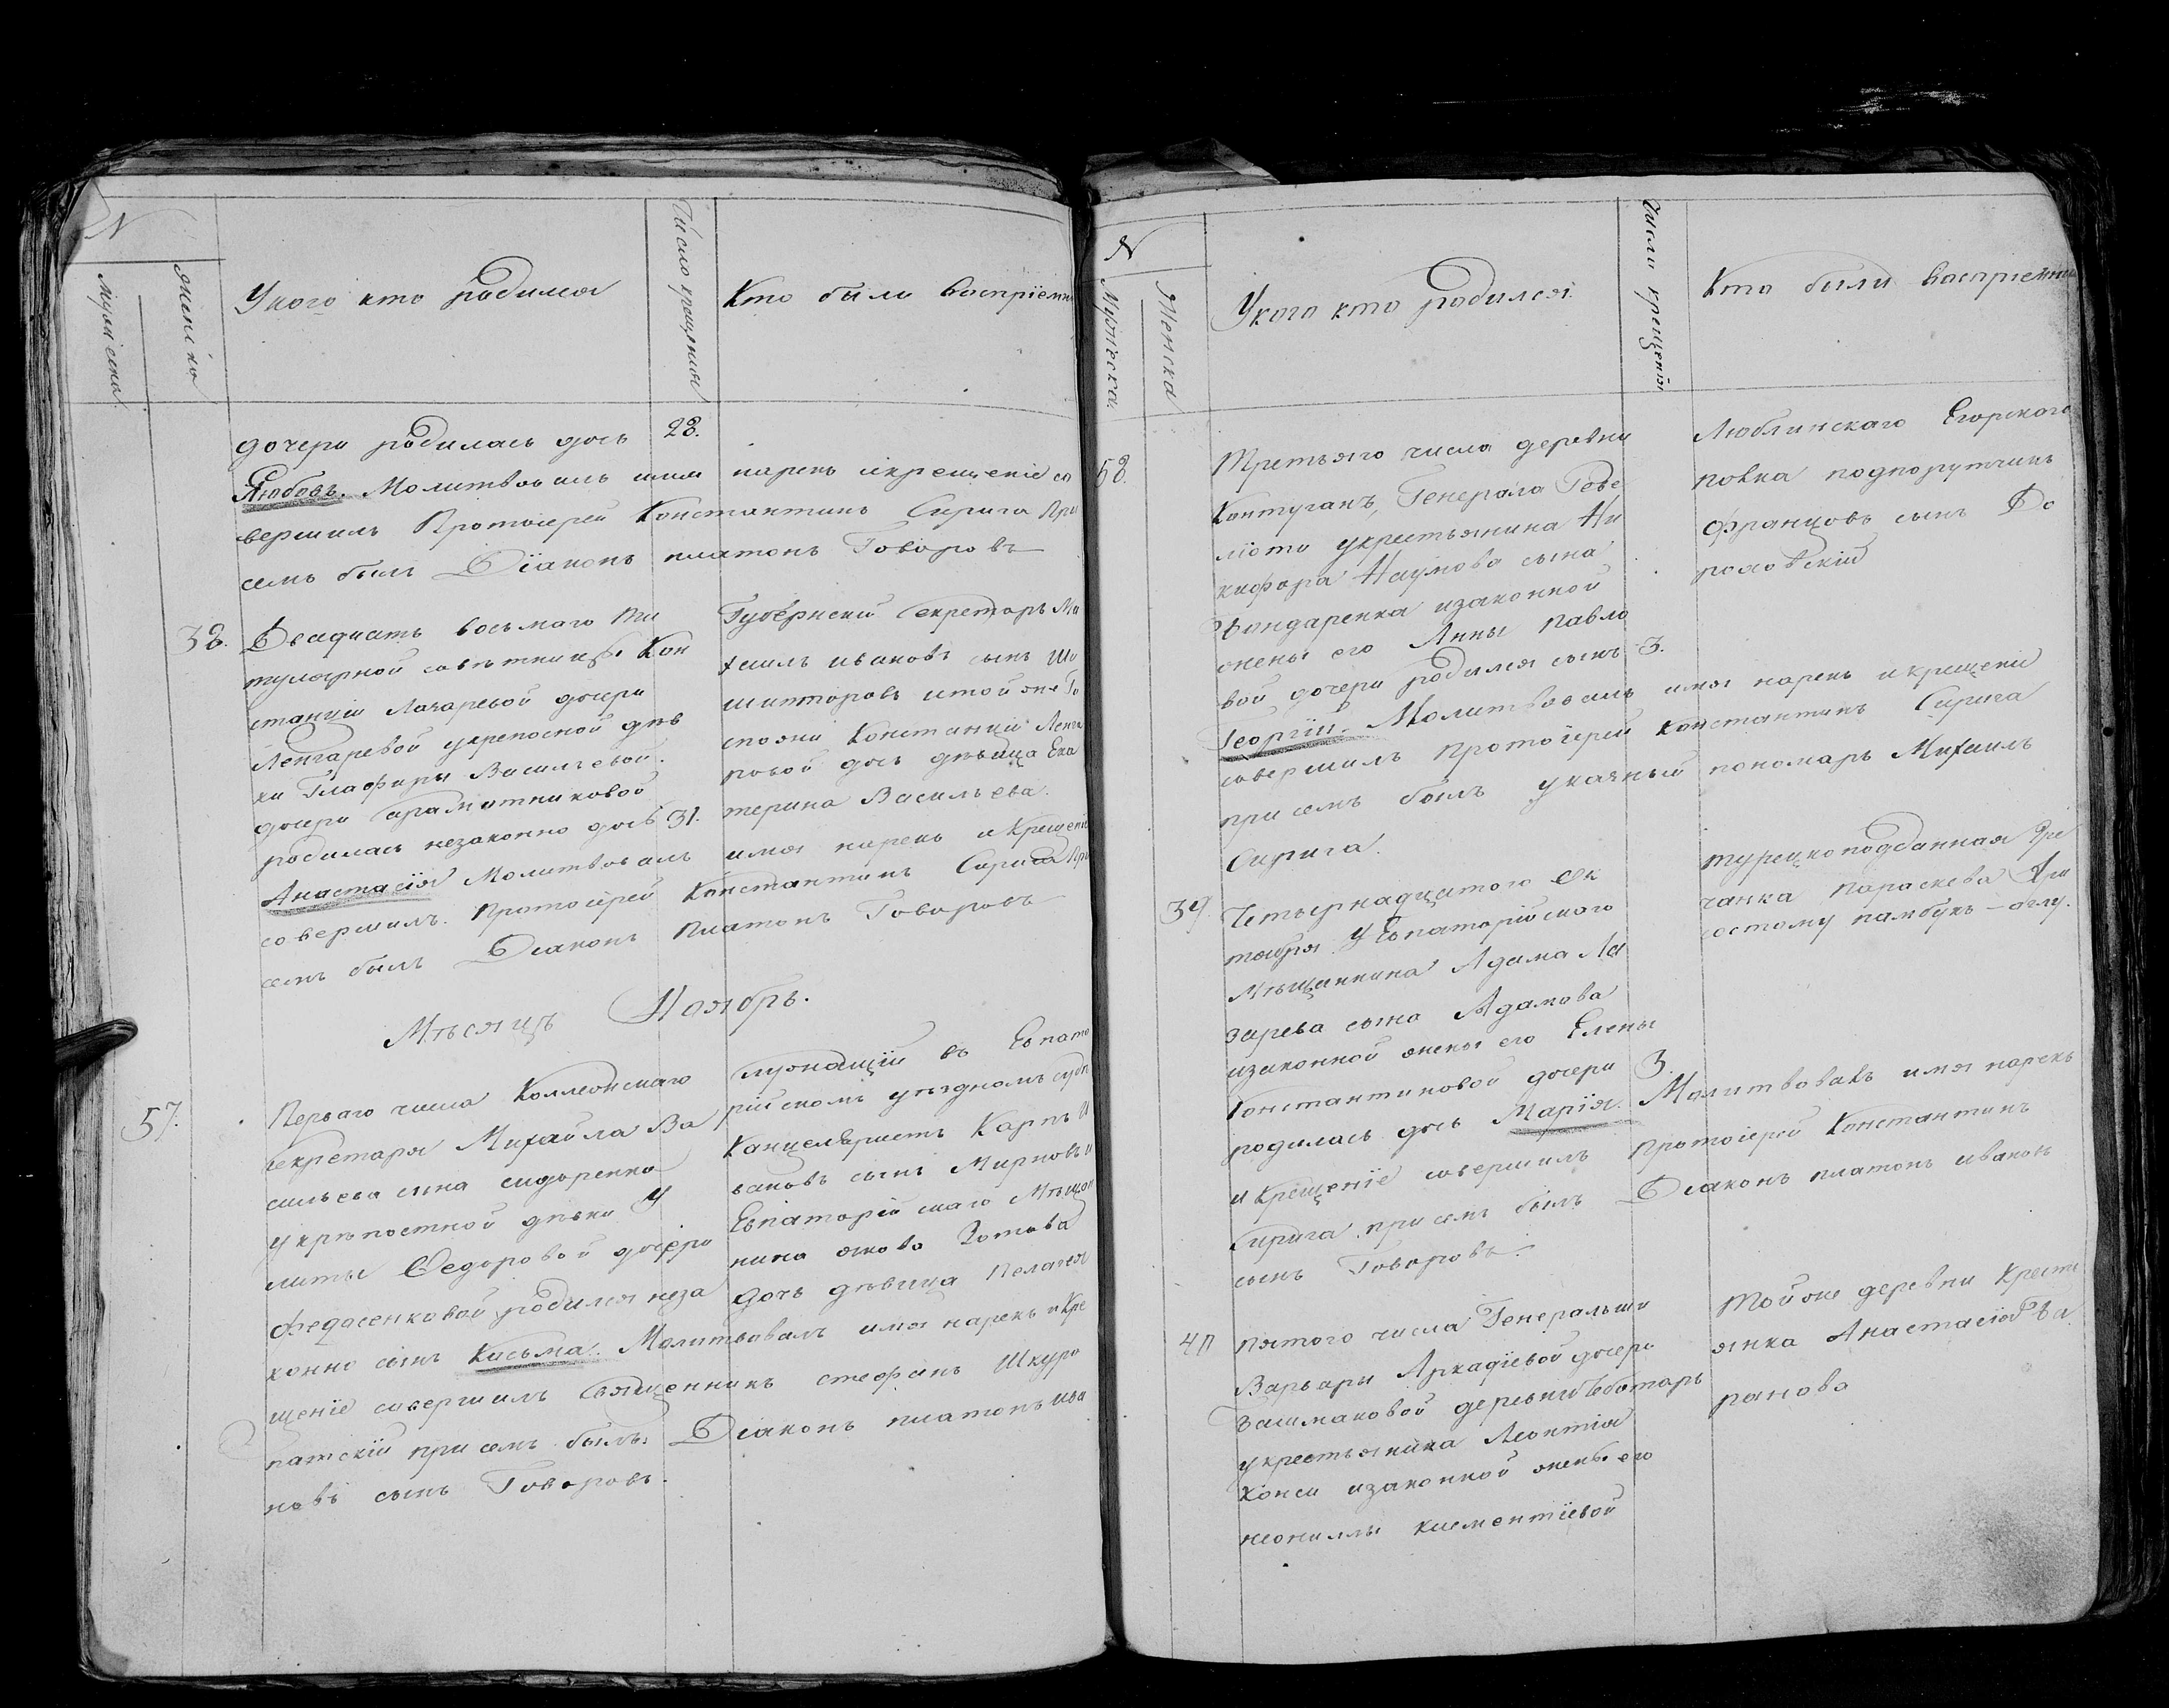 N
Мужеска
Женска
У кого кто родился
Число крещения
Кто были воспріемни
дочери родилась дочь 28.
Любовь. Молитвовалъ имя нарекъ и крещеніе со
вершилъ Протоіерей Константинъ Сирига При
семъ былъ Діаконъ платонъ Говоровъ
38.
Двадцать восьмаго Ти
тулярной совѣтницы Кон
станціи Лазаревой дочери
Ленгаревой укрепосной дѣв
ки Глафиры Васильевой
дочери Грамотниковой
родилась незаконно дочь 31.
Губернскій Секретарь Ми
хаилъ ивановъ сынъ Ши
шиторовъ итой же Го
спожи Констанціи Ленга
ровой дочь дѣвица Ека
терина Васильева.
Анастасія Молитвовалъ имя нарекъ и Крещеніе
совершилъ Протоіерей Константинъ Сирига При
семъ былъ Діаконъ Платонъ Говоровъ
Мѣсяцъ Ноябрь.
57.
Перваго числа Коллежскаго
Секретаря Михайла Ва
сильева сына сидоренка
укрѣпостной дѣвки У
литы Ѳедоровой дочери
Федосенковой родился неза
служащій въ Евпато
рійскомъ уѣздномъ судѣ
Канцеляристъ Карпъ И
вановъ сынъ Мирновъ и
Евпаторійскаго Мѣща
нина якова Зотова
дочь дѣвица Пелагея
конно сынъ Косьма. Молитвовалъ имя нарекъ и Кре
щеніе совершилъ Священникъ стефанъ Шкуро
патскій при семъ былъ Діаконъ платонъ ива
новъ сынъ Говоровъ.
N
Мужеска.
Женска
У кого кто родился
Числи крещенія
Кто были воспріемни
58.
Третьяго числа деревни
Контуганъ, Генерала Реве
ліоти укрестьянина Ни
кифора Наумова сына
Бондаренка изаконной
жены его Анны Павло
вой дочери родился сынъ 3.
Люблинскаго Егорскаго
полка подпорутчикъ
Францовъ сынъ До
Георгій. Молитвовалъ имя нарекъ и крещеніе
совершилъ Протоіерей Константинъ Сирига
при семъ былъ указный пономарь Михаилъ
Сирига.
39.
Четырнадцатого Ок
тября У Евпаторійскаго
Мѣщанина Адама Ла
зарева сына Адамова
изаконной жены его Елены
Константиновой дочери 3.
турецкоподданная Гре
чанка Параскева Хри
состому памбукъ-оглу.
родилась дочь Марія. Молитвовалъ имя нарекъ
и Крещеніе совершилъ Протоіерей Константинъ
Сирига при семъ былъ Діаконъ платонъ ивановъ
сынъ Говоровъ.
40
Пятого числа Генеральши
Варвары Аркадіевой дочери
Башмаковой деревни Чеботарь
укрестьянина Леонтія
изаконной жены его
неониллы клементіевой
Той же деревни Крести
янка Анастасія Ба
ранова